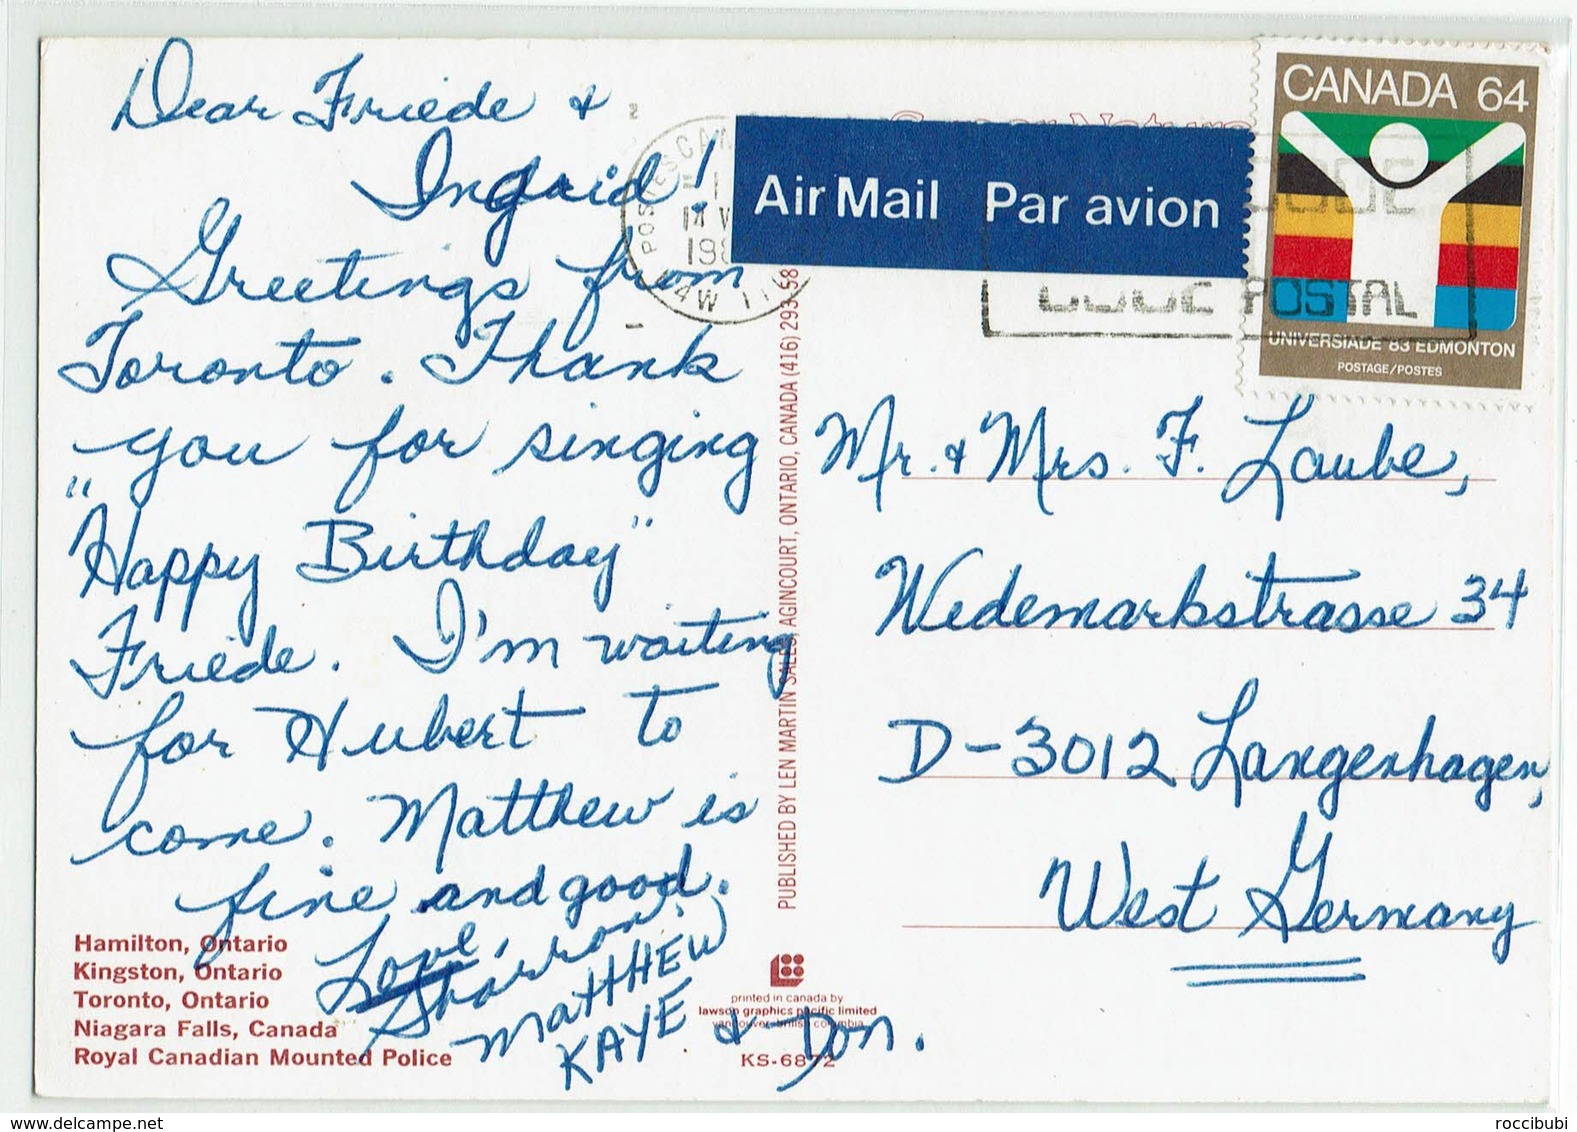 Dear Friede &
Ingrid!
Greetings from
Toronto. Thank
you for singing
"Happy Birthday"
Friede. I'm waiting
for Hubert to
come. Matthew is
fine and good.
Love,
Sharron,
MATTHEW
KAYE & Don.
Hamilton, Ontario
Kingston, Ontario
Toronto, Ontario
Niagara Falls, Canada
Royal Canadian Mounted Police
PUBLISHED BY LEN MARTIN SALES, AGINCOURT, ONTARIO, CANADA (416) 293-58
printed in canada by
lawson graphics pacific limited
vancouver, british columbia
KS-6872
Air Mail Par avion
CANADA 64
UNIVERSIADE 83 EDMONTON
POSTAGE/POSTES
CODE POSTAL
Mr. & Mrs. F. Laube,
Wedemarkstrasse 34
D-3012 Langenhagen,
West Germany
roccibubi